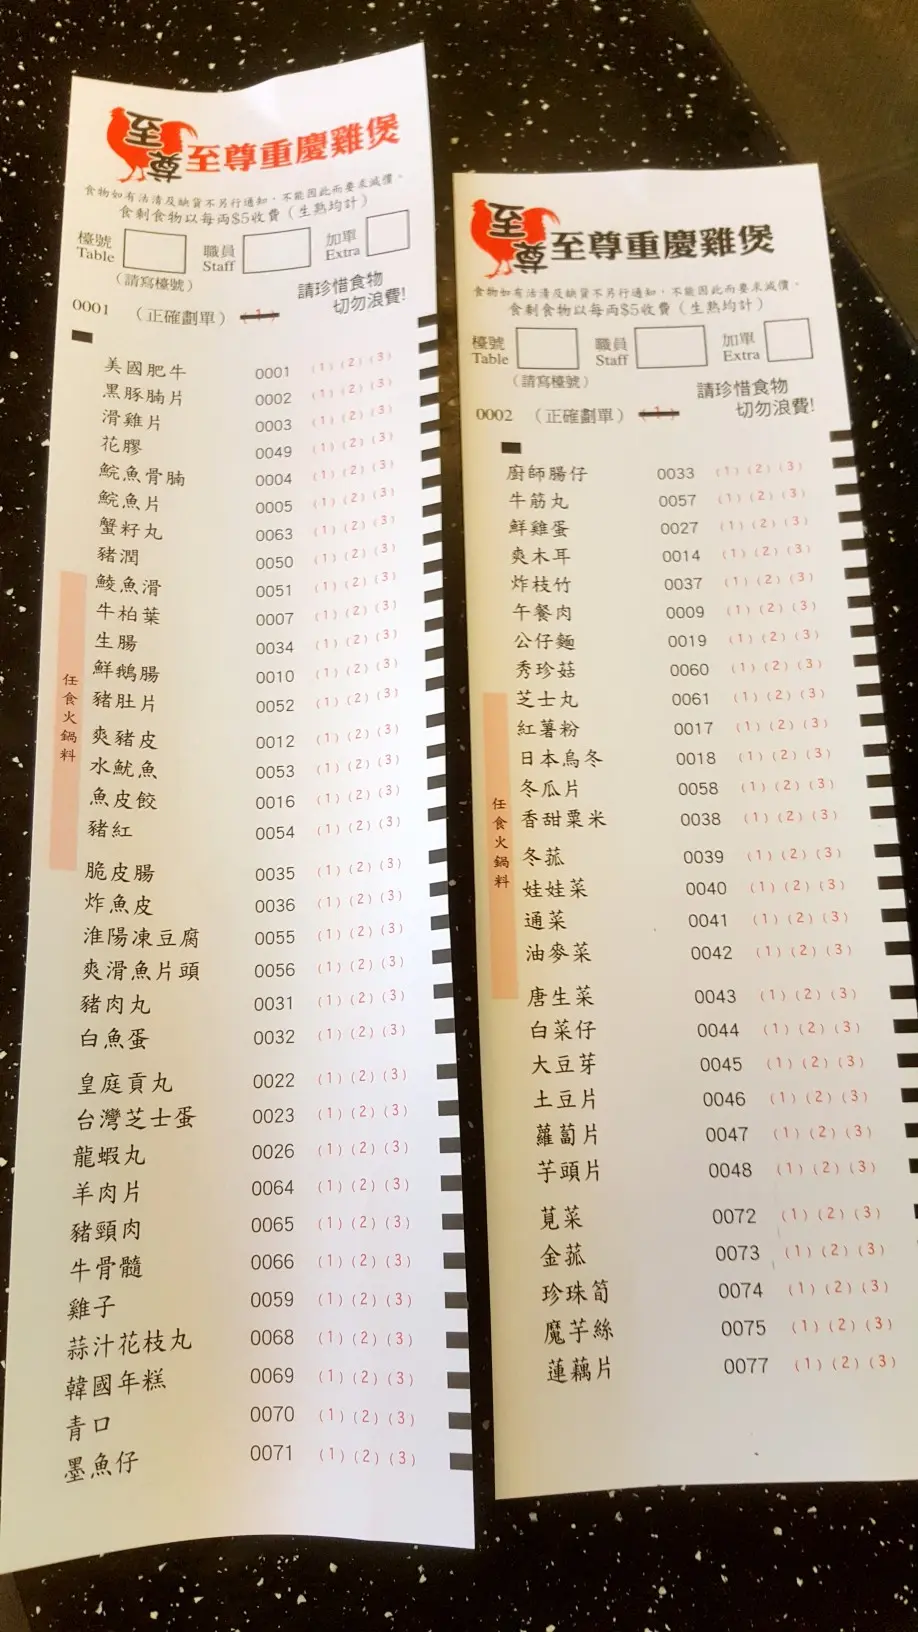 至尊
至尊重慶雞煲
食物如有沽清及缺貨不另行通知,不能因此而要求減價。
食剩食物以每両$5收費(生熟均計)
檯號 Table 職員 Staff 加單 Extra
(請寫檯號)
請珍惜食物
切勿浪費!
0001 (正確劃單) (1)
任食火鍋料
美國肥牛 0001 (1) (2) (3)
黑豚腩片 0002 (1) (2) (3)
滑雞片 0003 (1) (2) (3)
花膠 0049 (1) (2) (3)
鯇魚骨腩 0004 (1) (2) (3)
鯇魚片 0005 (1) (2) (3)
蟹籽丸 0063 (1) (2) (3)
豬潤 0050 (1) (2) (3)
鯪魚滑 0051 (1) (2) (3)
牛柏葉 0007 (1) (2) (3)
生腸 0034 (1) (2) (3)
鮮鵝腸 0010 (1) (2) (3)
豬肚片 0052 (1) (2) (3)
爽豬皮 0012 (1) (2) (3)
水魷魚 0053 (1) (2) (3)
魚皮餃 0016 (1) (2) (3)
豬紅 0054 (1) (2) (3)
脆皮腸 0035 (1) (2) (3)
炸魚皮 0036 (1) (2) (3)
淮陽凍豆腐 0055 (1) (2) (3)
爽滑魚片頭 0056 (1) (2) (3)
豬肉丸 0031 (1) (2) (3)
白魚蛋 0032 (1) (2) (3)
皇庭貢丸 0022 (1) (2) (3)
台灣芝士蛋 0023 (1) (2) (3)
龍蝦丸 0026 (1) (2) (3)
羊肉片 0064 (1) (2) (3)
豬頸肉 0065 (1) (2) (3)
牛骨髓 0066 (1) (2) (3)
雞子 0059 (1) (2) (3)
蒜汁花枝丸 0068 (1) (2) (3)
韓國年糕 0069 (1) (2) (3)
青口 0070 (1) (2) (3)
墨魚仔 0071 (1) (2) (3)
至尊
至尊重慶雞煲
食物如有沽清及缺貨不另行通知,不能因此而要求減價。
食剩食物以每両$5收費(生熟均計)
檯號 Table 職員 Staff 加單 Extra
(請寫檯號)
請珍惜食物
切勿浪費!
0002 (正確劃單) (1)
任食火鍋料
廚師腸仔 0033 (1) (2) (3)
牛筋丸 0057 (1) (2) (3)
鮮雞蛋 0027 (1) (2) (3)
爽木耳 0014 (1) (2) (3)
炸枝竹 0037 (1) (2) (3)
午餐肉 0009 (1) (2) (3)
公仔麵 0019 (1) (2) (3)
秀珍菇 0060 (1) (2) (3)
芝士丸 0061 (1) (2) (3)
紅薯粉 0017 (1) (2) (3)
日本烏冬 0018 (1) (2) (3)
冬瓜片 0058 (1) (2) (3)
香甜粟米 0038 (1) (2) (3)
冬菰 0039 (1) (2) (3)
娃娃菜 0040 (1) (2) (3)
通菜 0041 (1) (2) (3)
油麥菜 0042 (1) (2) (3)
唐生菜 0043 (1) (2) (3)
白菜仔 0044 (1) (2) (3)
大豆芽 0045 (1) (2) (3)
土豆片 0046 (1) (2) (3)
蘿蔔片 0047 (1) (2) (3)
芋頭片 0048 (1) (2) (3)
莧菜 0072 (1) (2) (3)
金菰 0073 (1) (2) (3)
珍珠筍 0074 (1) (2) (3)
魔芋絲 0075 (1) (2) (3)
蓮藕片 0077 (1) (2) (3)